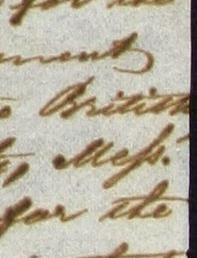 for the
ment
British
Mess.
for the